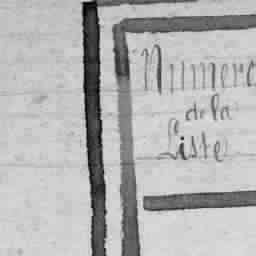 Numero
de la
Liste